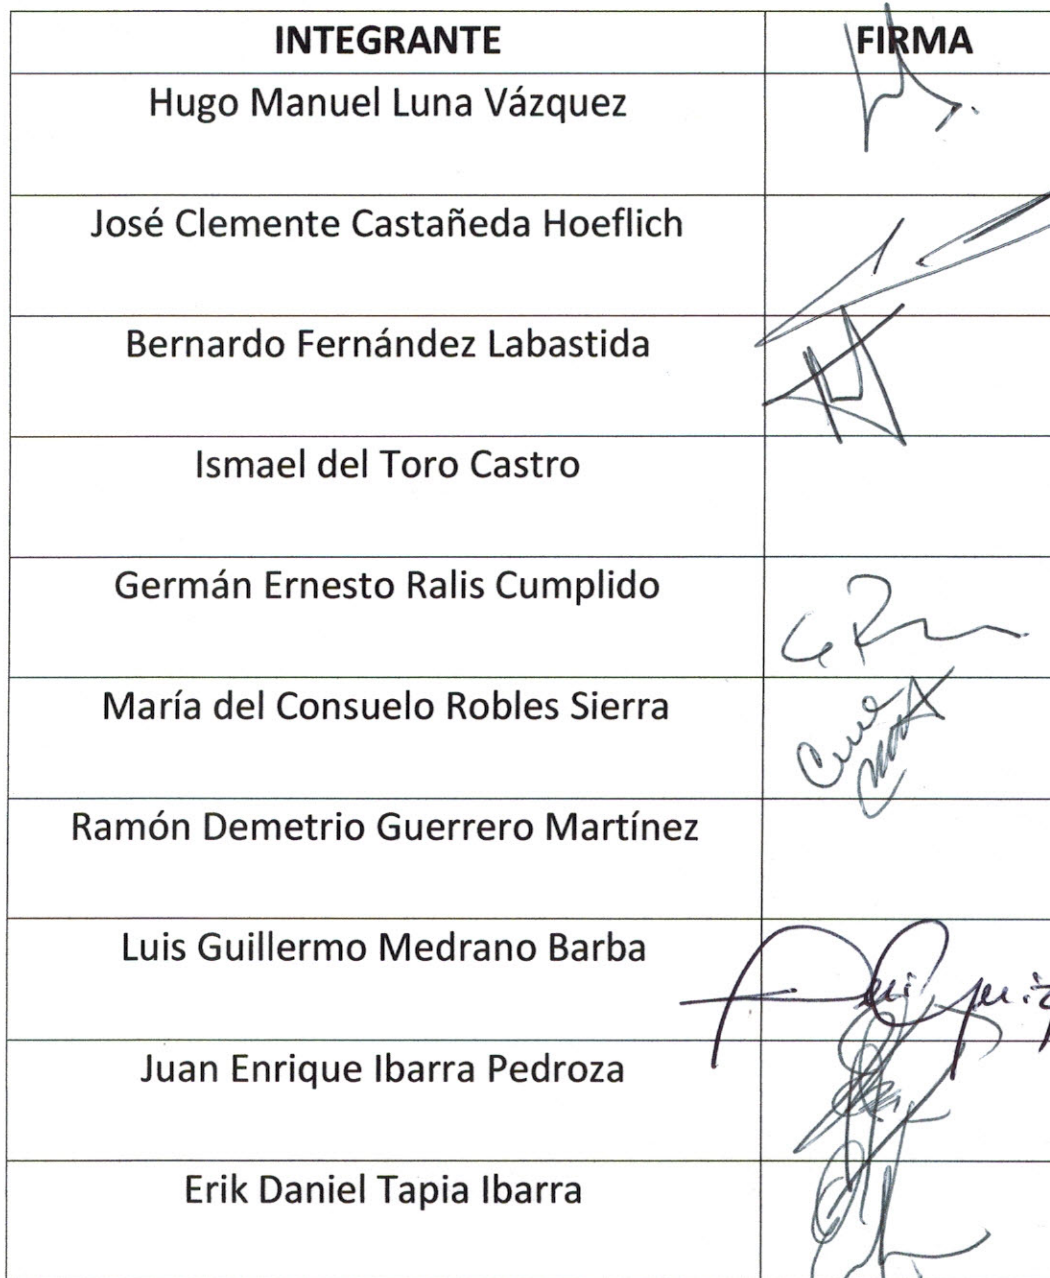 INTEGRANTE FIRMA
Hugo Manuel Luna Vázquez
José Clemente Castañeda Hoeflich
Bernardo Fernández Labastida
Ismael del Toro Castro
Germán Ernesto Ralis Cumplido
María del Consuelo Robles Sierra
Ramón Demetrio Guerrero Martínez
Luis Guillermo Medrano Barba
Juan Enrique Ibarra Pedroza
Erik Daniel Tapia Ibarra